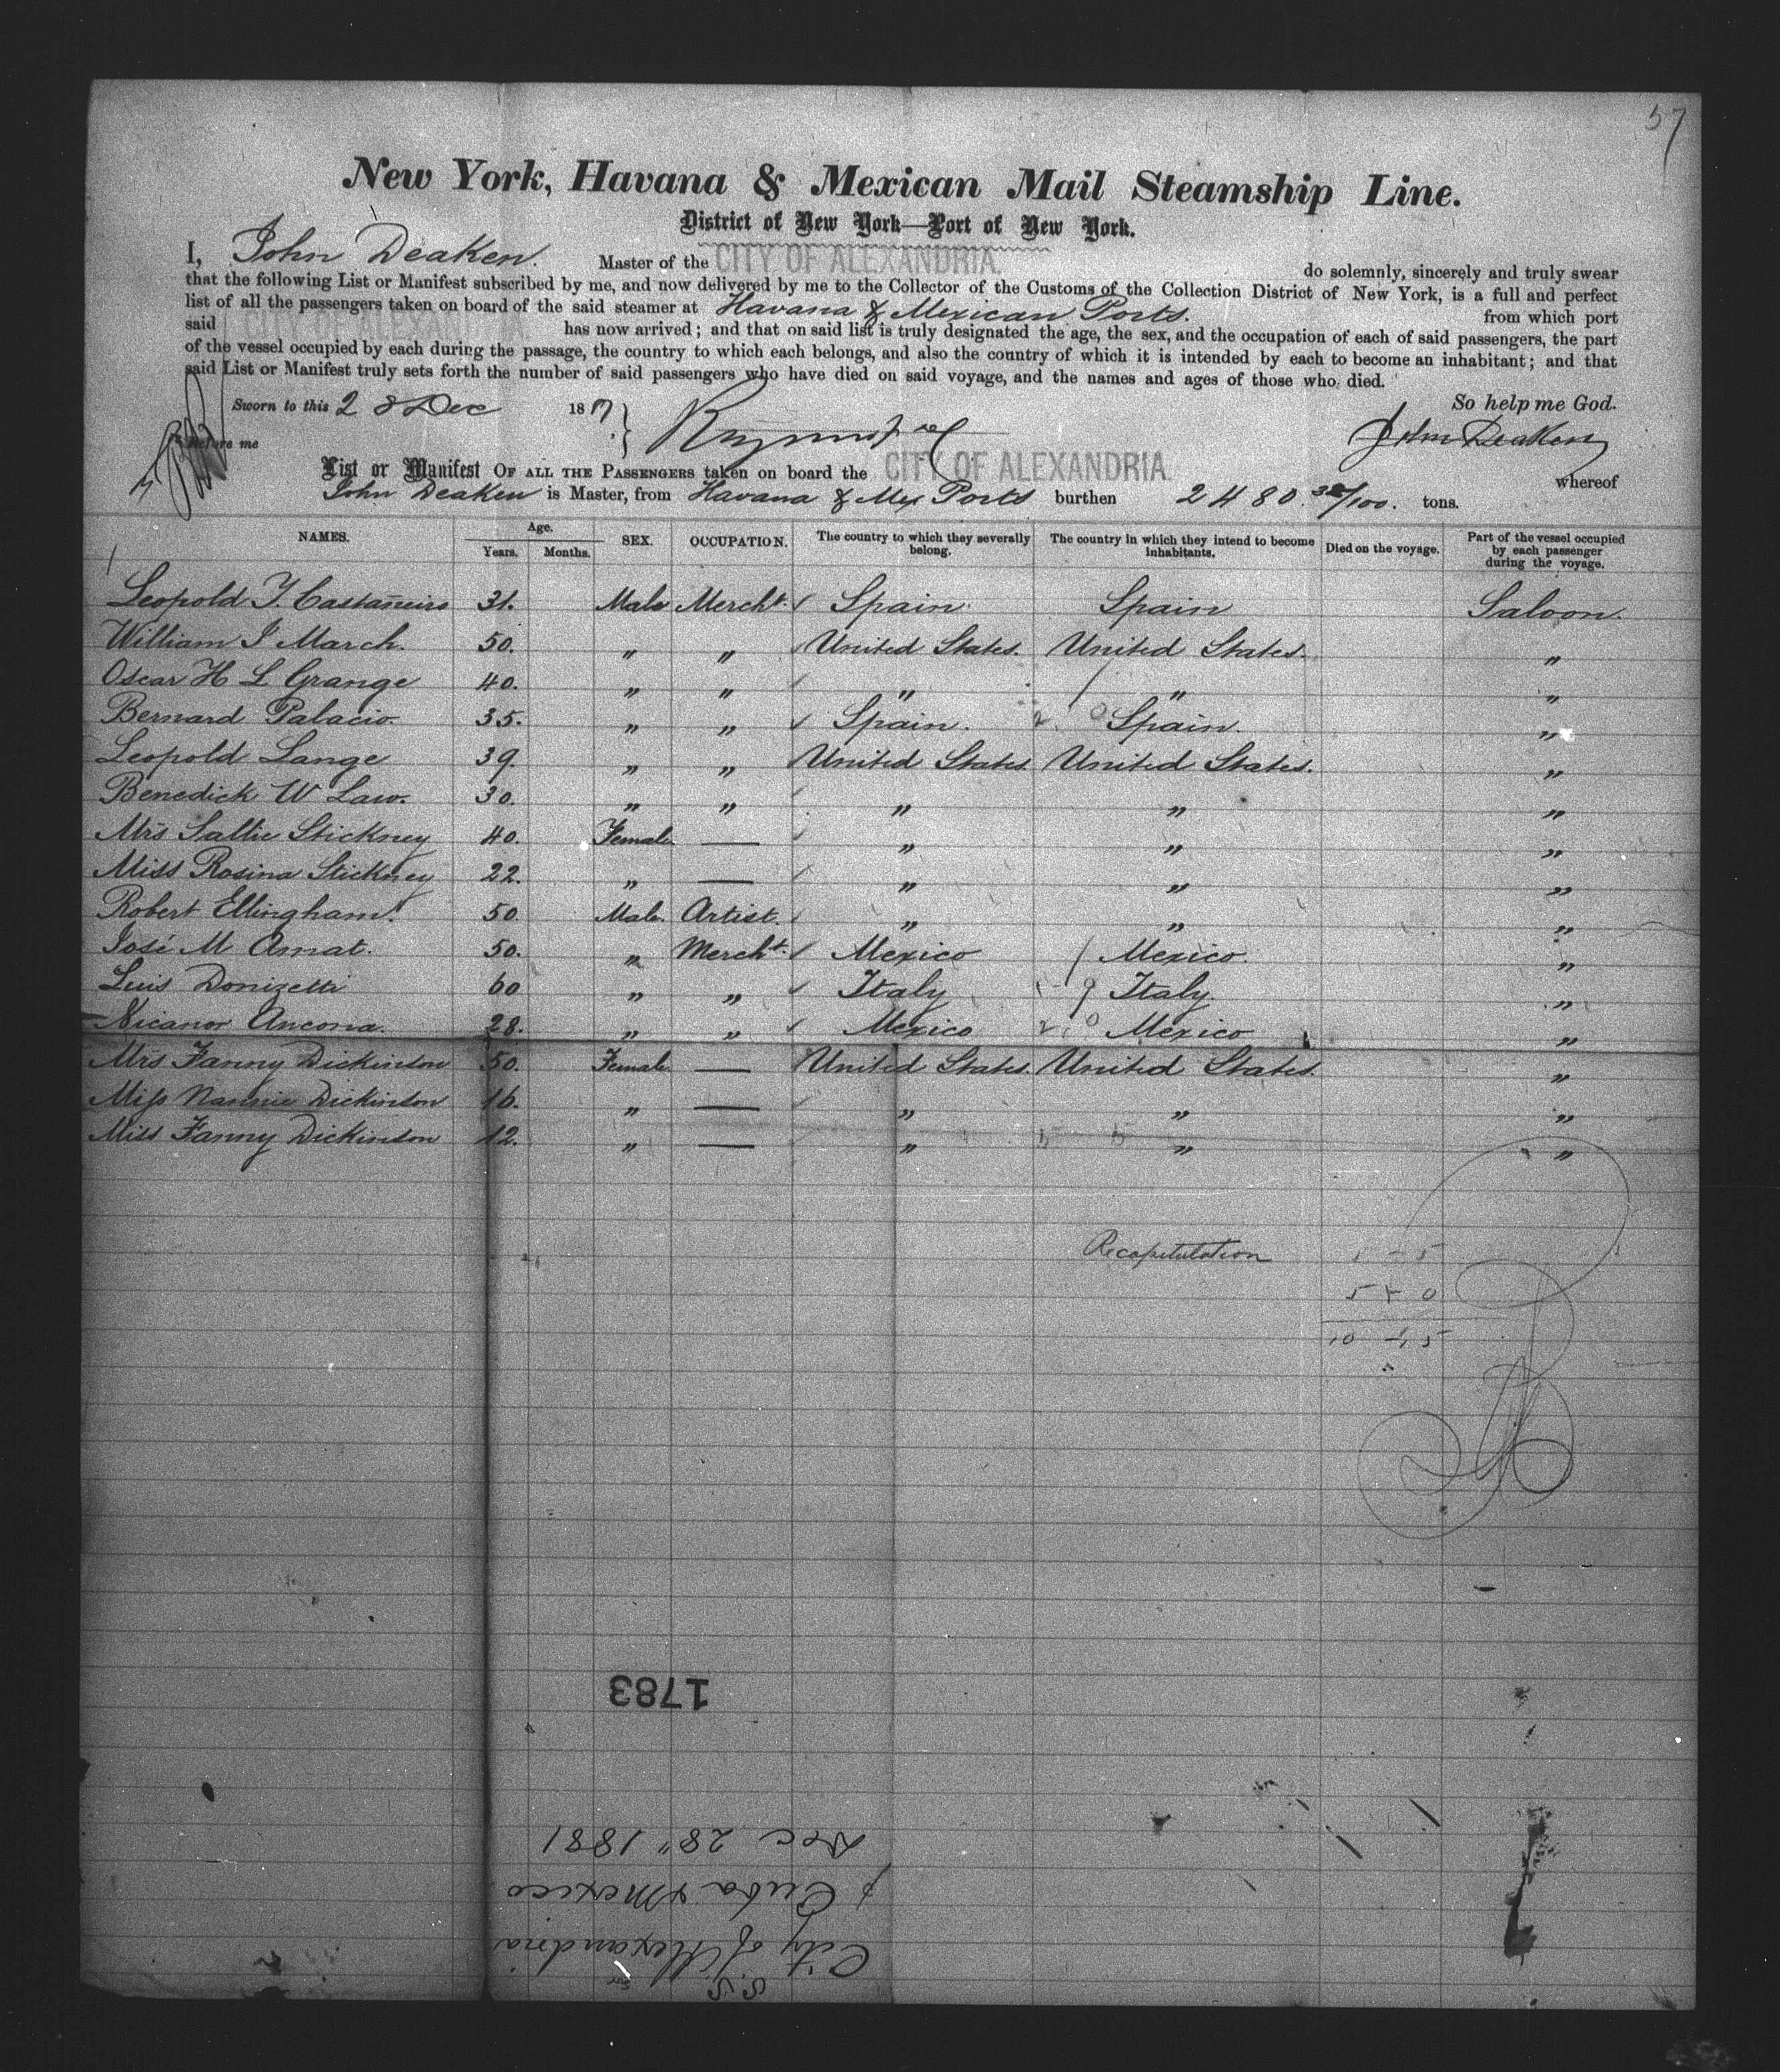 57
New York, Havana & Mexican Mail Steamship Line.
District of New York—Port of New York.
I, John Deaken. Master of the CITY OF ALEXANDRIA. do solemnly, sincerely and truly swear
that the following List or Manifest subscribed by me, and now delivered by me to the Collector of the Customs of the Collection District of New York, is a full and perfect
list of all the passengers taken on board of the said steamer at Havana & Mexican Ports. from which port
said CITY OF ALEXANDRIA has now arrived; and that on said list is truly designated the age, the sex, and the occupation of each of said passengers, the part
of the vessel occupied by each during the passage, the country to which each belongs, and also the country of which it is intended by each to become an inhabitant; and that
said List or Manifest truly sets forth the number of said passengers who have died on said voyage, and the names and ages of those who died.
So help me God.
Sworn to this 28 Dec 188
before me
John Deaken
List or Manifest OF ALL THE PASSENGERS taken on board the CITY OF ALEXANDRIA. whereof
John Deaken is Master, from Havana & Mex Ports burthen 2480 38/100. tons.
NAMES. Age. Years. Months. SEX. OCCUPATION. The country to which they severally belong. The country in which they intend to become inhabitants. Died on the voyage. Part of the vessel occupied by each passenger during the voyage.
Leopold Y. Castañeiro 31. Male Mercht. Spain Spain Saloon.
William I March. 50. " " United States. United States. "
Oscar H L Grange 40. " " " " "
Bernard Palacio. 35. " " Spain. Spain. "
Leopold Lange 39. " " United States United States. "
Benedick W Law. 30. " " " " "
Mrs Sallie Stickney 40. Female — " " "
Miss Rosina Stickney 22. " — " " "
Robert Ellingham. 50 Male. Artist. " " "
José M Amat. 50. " Mercht. Mexico Mexico. "
Luis Donizetti 60 " " Italy Italy. "
Nicanor Ancona. 28. " " Mexico Mexico "
Mrs Fanny Dickinson 50. Female — United States. United States. "
Miss Nannie Dickinson 16. " — " " "
Miss Fanny Dickinson 12. " — " " "
Recapitulation
1783
S.S.
City of Alexandria
f Cuba & Mexico
Dec 28" 1881